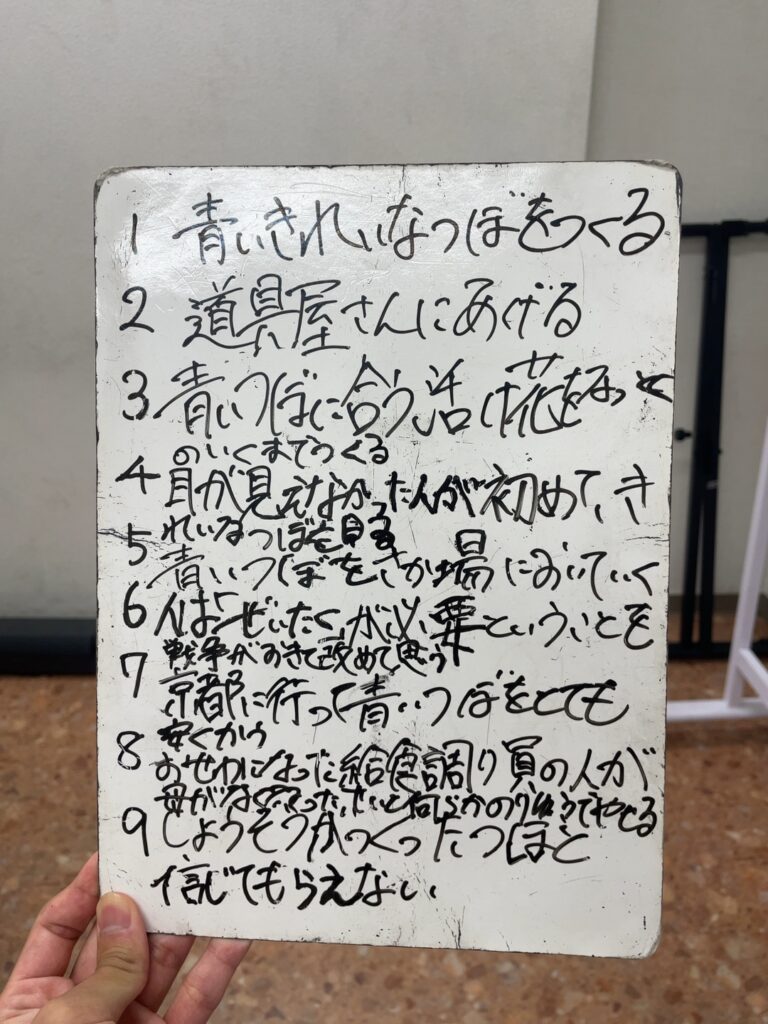 1 青いきれいなつぼをつくる
2 道具屋さんにあげる
3 青いつぼに合う活け花をなっとく
のいくまでつくる
4 目が見えなかった人が初めて、き
れいなつぼを見る
5 青いつぼをさか場においていく
6 人はぜいたくが必要ということを
戦争がおきて改めて思う
7 京都に行って青いつぼをとても
安くかう
8 おせわになった給食調り員の人が
母がなくなったり
9 しょうぞうがつくったつぼと
信じてもらえない